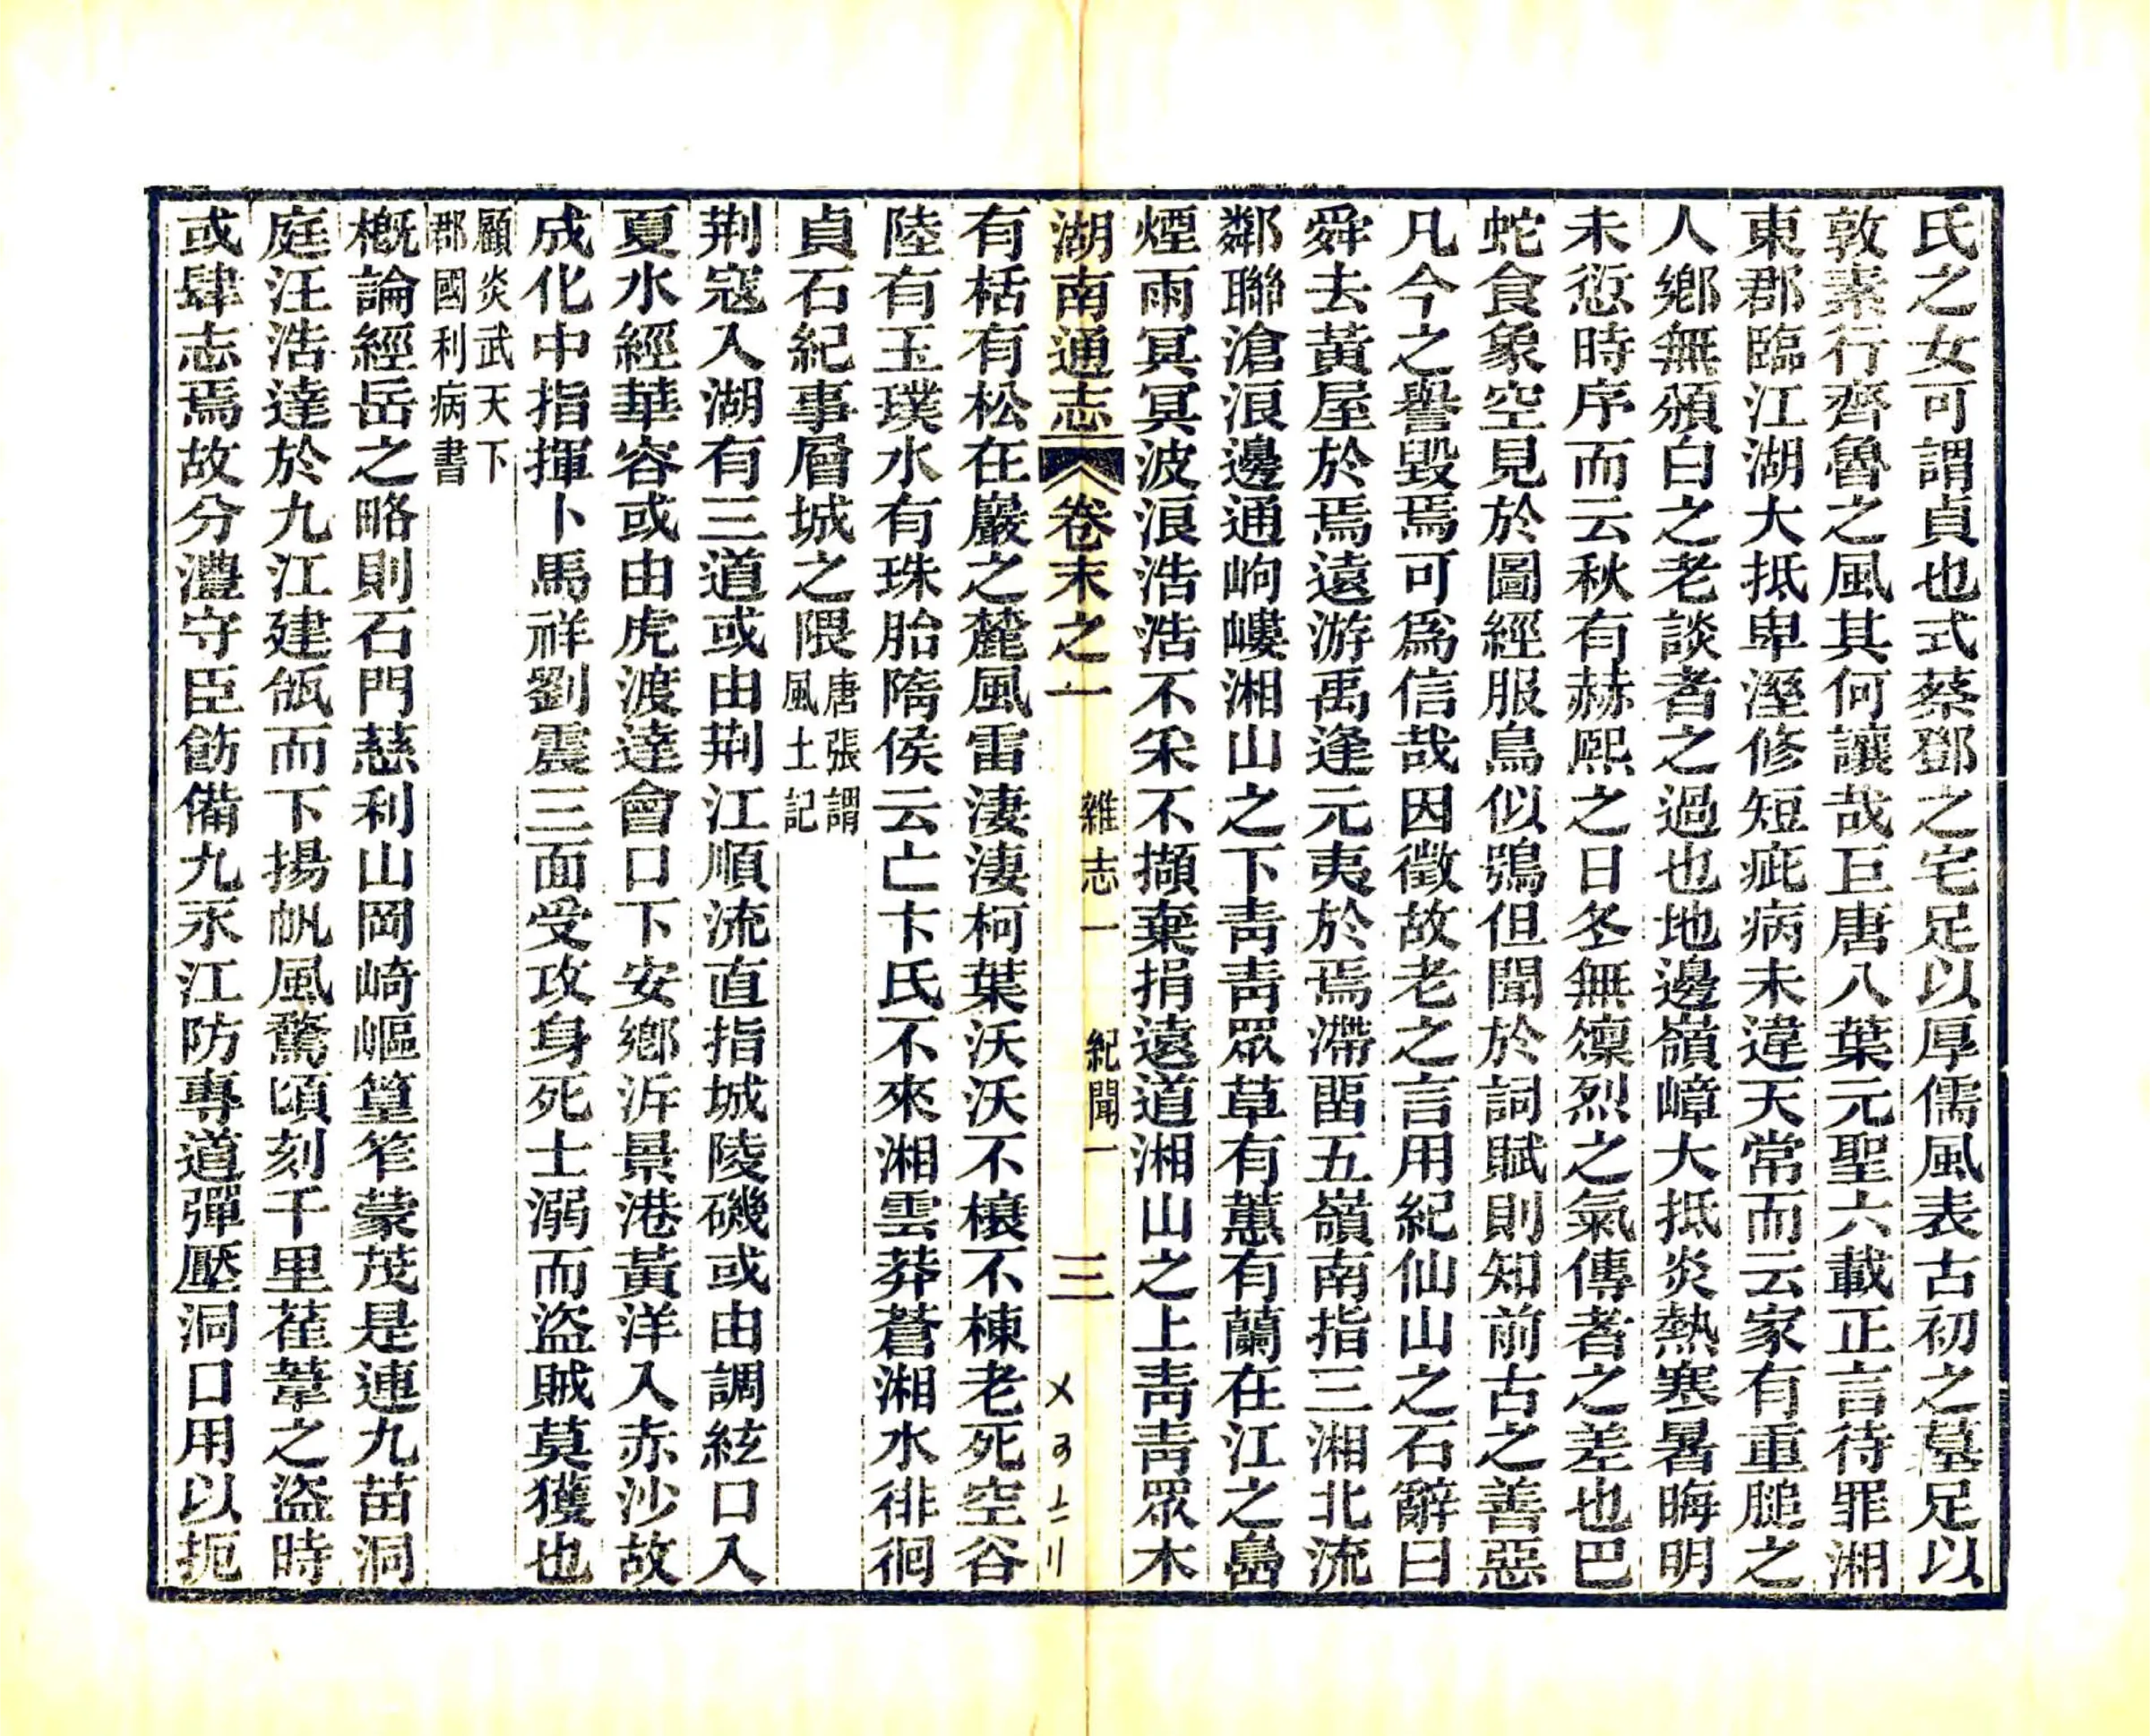 氏之女可謂貞也式蔡鄧之宅足以厚儒風表古初之墓足以
敦素行齊魯之風其何讓哉巨唐八葉元聖六載正言待罪湘
東郡臨江湖大抵卑溼修短疵病未違天常而云家有重膇之
人鄉無頒白之老談者之過也地邊嶺嶂大抵炎熱寒暑晦明
未愆時序而云秋有赫熙之日冬無凜烈之氣傳者之差也巴
蛇食象空見於圖經服鳥似鴞但聞於詞賦則知前古之善惡
凡今之譽毀焉可爲信哉因徵故老之言用紀仙山之石辭曰
舜去黃屋於焉遠游禹逢元夷於焉滯畱五嶺南指三湘北流
鄰聯滄浪邊通岣嶁湘山之下靑靑眾草有蕙有蘭在江之島
煙雨冥冥波浪浩浩不采不擷棄捐遠道湘山之上靑靑眾木
湖南通志 卷末之一 雜志一 紀聞一 三
有栝有松在巖之麓風雷淒淒柯葉沃沃不榱不棟老死空谷
陸有玉璞水有珠胎隋侯云亡卞氏不來湘雲莽蒼湘水徘徊
貞石紀事層城之隈唐張謂風土記
荆寇入湖有三道或由荆江順流直指城陵磯或由調絃口入
夏水經華容或由虎渡達會口下安鄉泝景港黃洋入赤沙故
成化中指揮卜馬祥劉震三面受攻身死士溺而盜賊莫獲也
顧炎武天下郡國利病書
槪論經岳之略則石門慈利山岡崎嶇篁笮蒙茂是連九苗洞
庭汪浩達於九江建瓴而下揚帆風驚頃刻千里萑葦之盜時
或肆志焉故分澧守臣飭備九永江防專道彈壓洞口用以扼